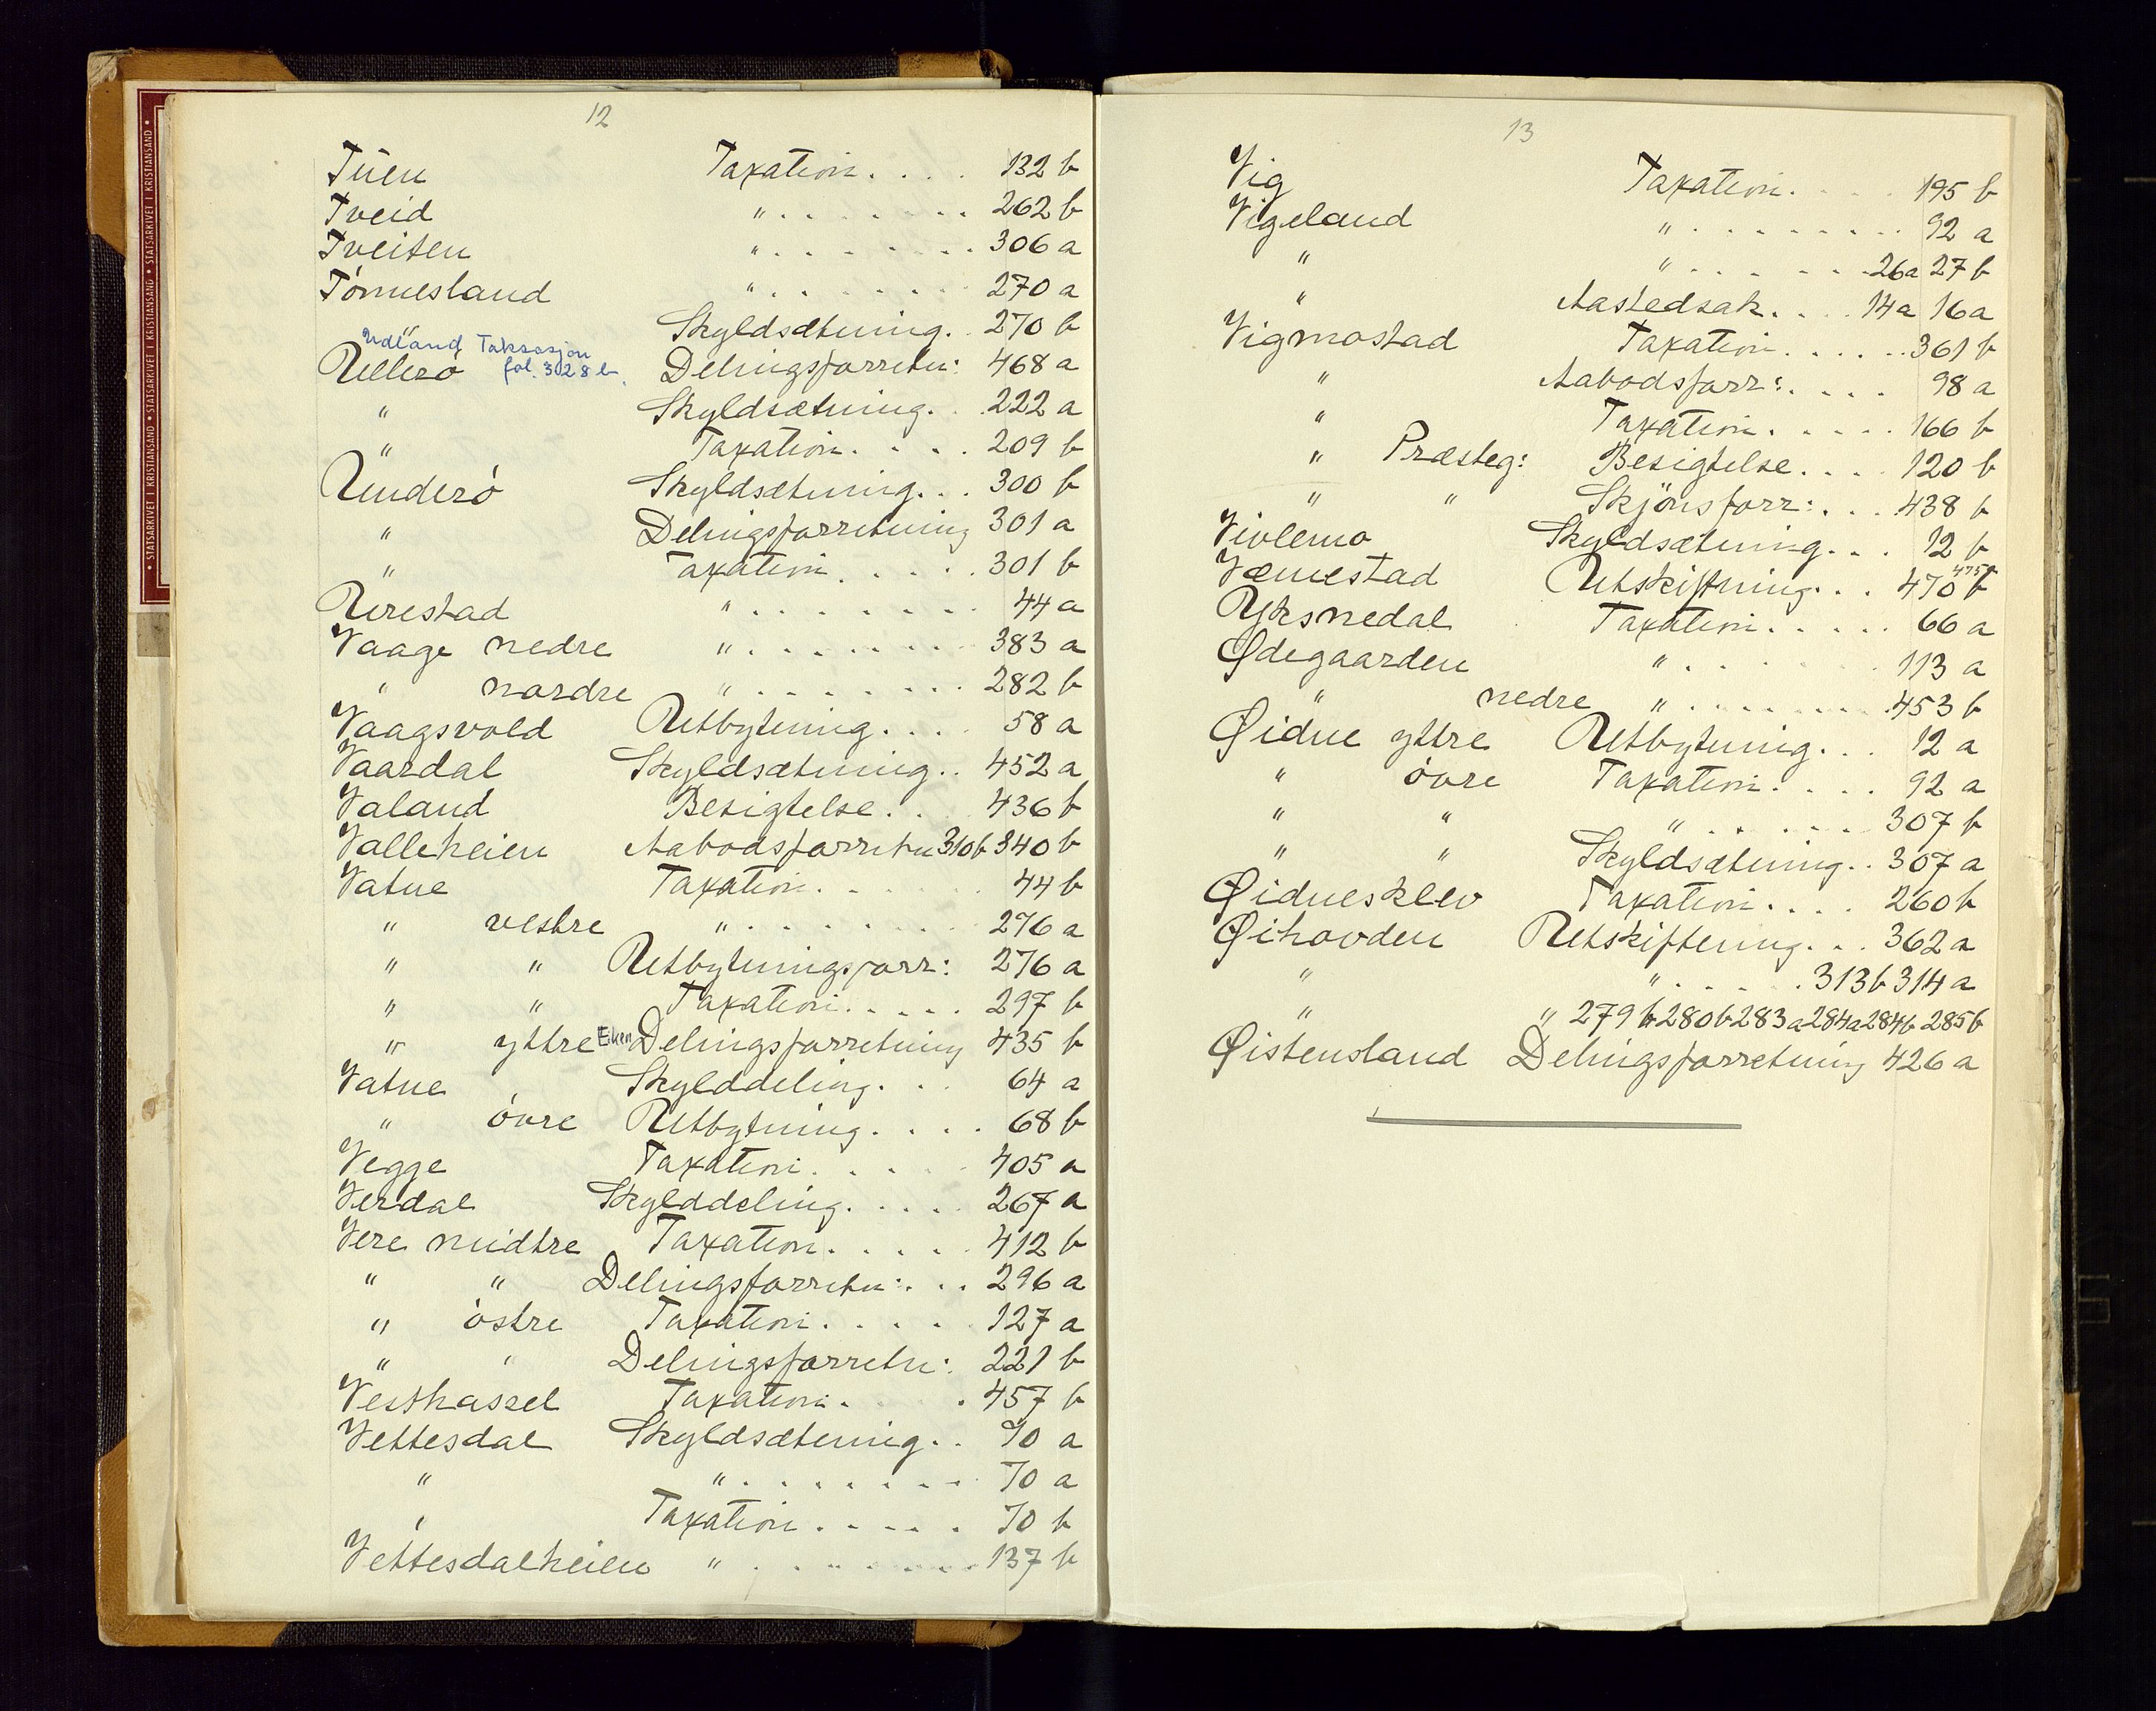 12
Tuen Taxation. . . . 132 b
Tveid " . . . . . . . . 262 b
Tveiten " . . . . . . . . 306 a
Tönnesland " . . . . . . . 270 a
" Skyldsætning. . 270 b
Udland Taksasjon
fol. 328 b.
Ullerö Delingsforretn: 468 a
" Skyldsætning. . . 222 a
" Taxation. . . . 209 b
Underö Skyldsætning. . . 300 b
" Delingsforretning 301 a
" Taxation. . . . . 301 b
Urestad " . . . . . . . . 44 a
Vaage nedre " . . . . . . . . 383 a
" nordre " . . . . . . . . 282 b
Vaagsvold Utbytning. . . . 58 a
Vaardal Skyldsætning. . 452 a
Valand Besigtelse. . . 436 b
Valleheien Aabodsforretn 310b 340 b
Vatne Taxation. . . . . 44 b
" vestre " . . . . . . . 276 a
" " Utbytningsforr: 276 a
" " Taxation. . . . . 297 b
" yttre Eiken Delingsforretning 435 b
Vatne Skylddeling. . . 64 a
" övre Utbytning. . . . 68 b
Vegge Taxation. . . . . 405 a
Verdal Skylddeling. . . . . 267 a
Vere midtre Taxation. . . . . 412 b
" " Delingsforretn: . . . 296 a
" östre Taxation. . . . . 127 a
" " Delingsforretn: 221 b
Vesthassel Taxation. . . . 457 b
Vettesdal Skyldsætning. . 70 a
" " . . . . . . . . 70 a
" Taxation. . . . . 70 b
Vettesdalheien " . . . . . . . . 137 b
13
Vig Taxation. . . . . 195 b
Vigeland " . . . . . . . . . 92 a
" " . . . . . . 26a 27 b
" Aastedsak. . . . 14a 16a
Vigmostad Taxation. . . . . . 361 b
" Aabodsforr: . . . . 98 a
" Taxation. . . . . . 166 b
" Præsteg: Besigtelse. . . . 120 b
" " Skjönsforr: . . . 438 b
Violemo Skyldsætning. . . 12 b
Væmestad Utskiftning. . . 470 b
Yksnedal Taxation. . . . . 66 a
Ødegaarden " . . . . . . . 113 a
" nedre " . . . . . . . . 453 b
Øidne yttre Utbytning. . . 12 a
" övre Taxation. . . . . 92 a
" " " . . . . . . 307 b
" " Skyldsætning. . 307 a
Øidnesklev Taxation. . . . 260 b
Øihovden Utskiftning. . . 362 a
" " . . . . . 313 b 314 a
" " 279 b 280 b 283 a 284a 284b 285 b
Øistensland Delingsforretning 426 a
• STATSARKIVET I KRISTIANSAND • STATSARKIVET I KRISTIANSAND • STATSARKIVET I KRISTIANSAND •